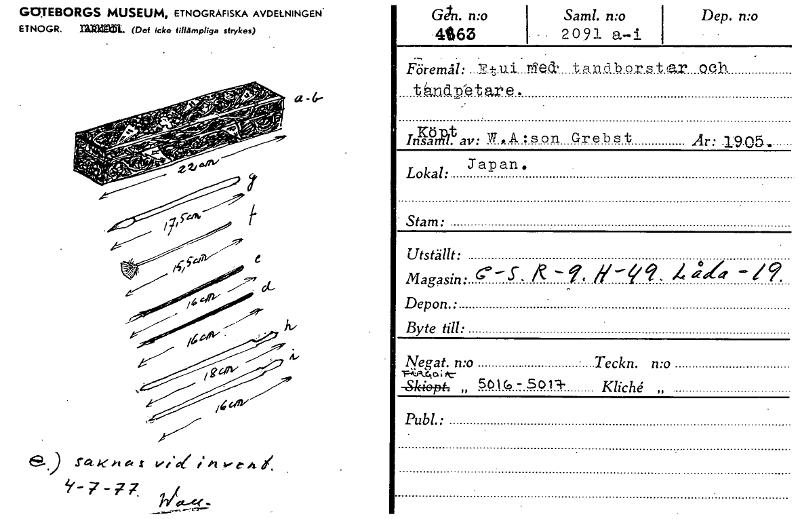 GÖTEBORGS MUSEUM, ETNOGRAFISKA AVDELNINGEN
ETNOGR. (Det icke tillämpliga strykes)
a-b
22cm
g
17,5cm
f
15,5cm
e
16cm
d
16cm
h
18cm
i
16cm
e.) saknas vid invent.
4-7-77.
Gen. n:o Saml. n:o Dep. n:o
2091 a-i
Föremål: Etui med tandborstar och
tandpetare.
Köpt
Insaml. av: W.A:son Grebst År: 1905.
Lokal: Japan.
Stam:
Utställt:
Magasin: C-S. R-9. H-49. Låda-19.
Depon.:
Byte till:
Negat. n:o Teckn. n:o
FÄRGDIA
Skiopt. „ 5016-5017 Kliché „
Publ.: